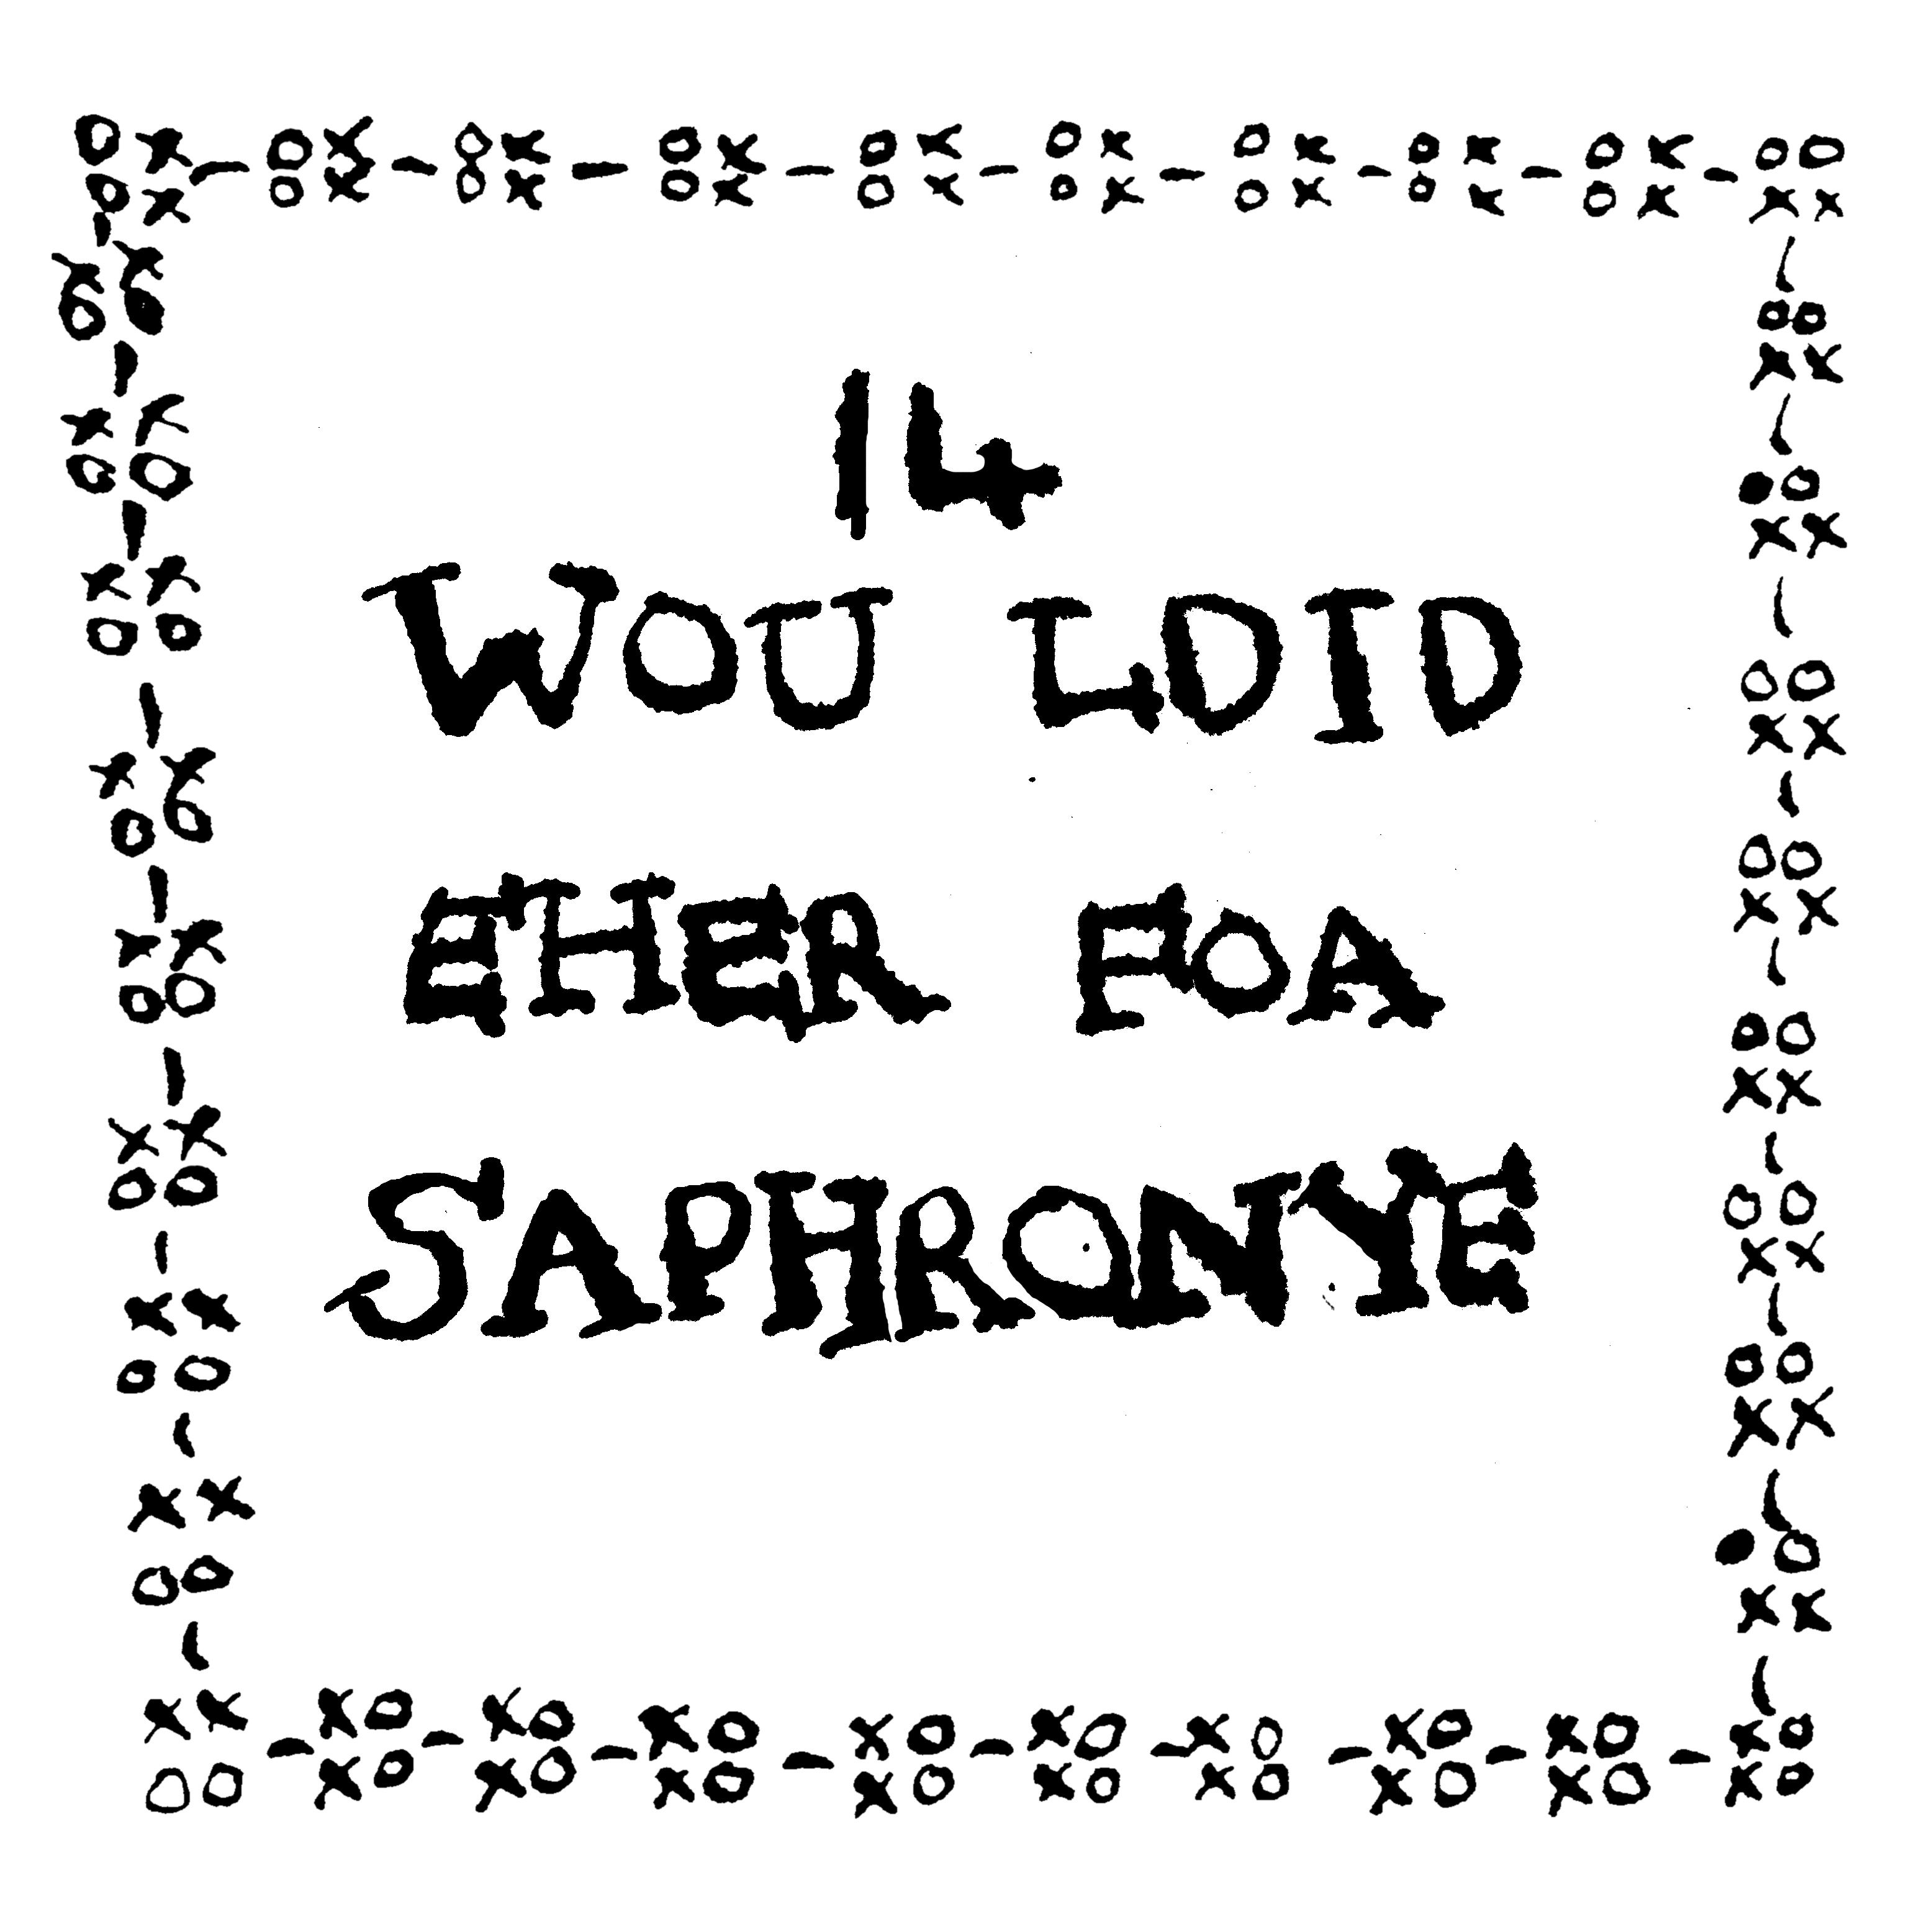 14
WOU LDID
ETHER FOA
SAPHRONYE